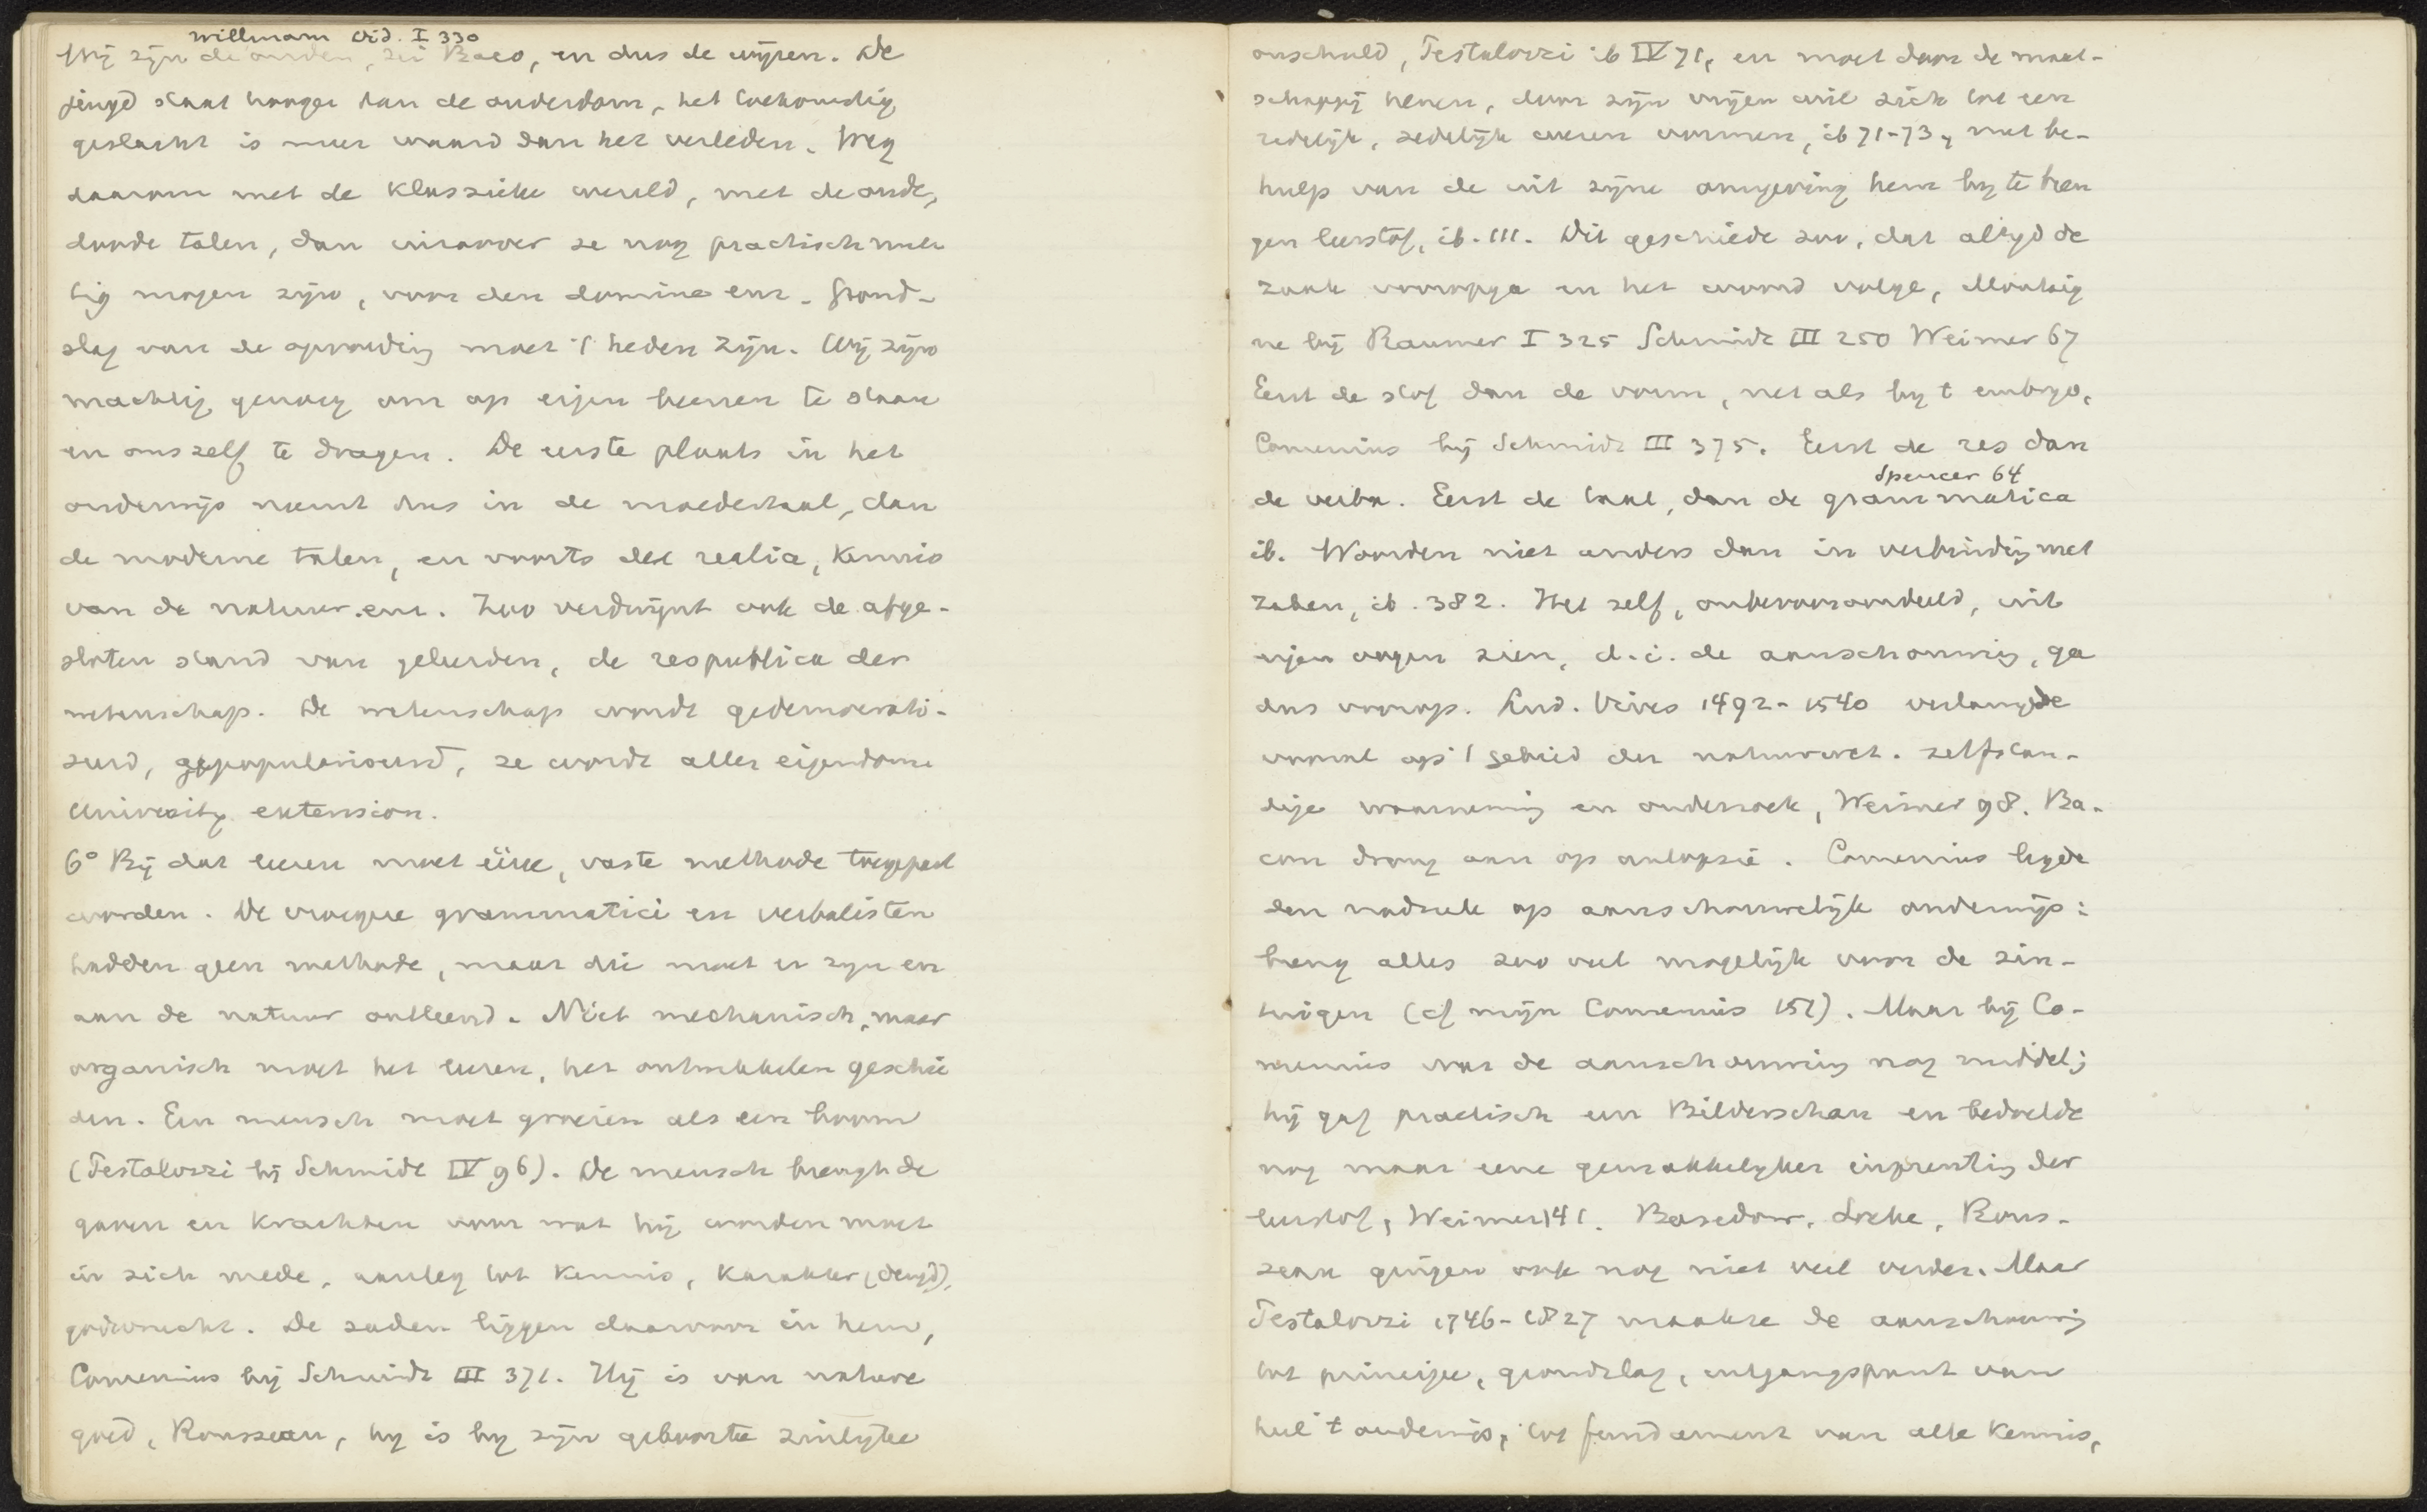 Willmann Did. I 330
Wij zijn de ouden, zei Baco, en dus de wijzen. De
jeugd staat hooger dan de ouderdom, het toekomstig
geslacht is meer waard dan het verleden. Weg
daarom met de klassieke wereld, met de oude,
doode talen, dan inzoover ze nog practisch nut
tig mogen zijn, voor den domine enz. Grond-
slag van de opvoeding moet 't heden zijn. Wij zijn
machtig genoeg om op eigen beenen te staan
en ons zelf te dragen. De eerste plaats in het
onderwijs neemt dus in de moedertaal, dan
de moderne talen, en voorts de realia, kennis
van de natuur enz. Zoo verdwijnt ook de afge-
sloten stand van geleerden, de respublica der
wetenschap. De wetenschap wordt gedemocrati-
seerd, gepopulariseerd, ze wordt aller eigendom
University extension.
6° Bij dat leeren moet ééne, vaste methode toegepast
worden. De vroegere grammatici en verbalisten
hadden geen methode, maar die moet er zijn en
aan de natuur ontleend. Niet mechanisch, maar
organisch moet het leeren, het ontwikkelen geschie
den. Een mensch moet groeien als een boom
(Pestalozzi bij Schmidt IV 96). De mensch brengt de
gaven en krachten voor wat hij worden moet
in zich mede, aanleg tot kennis, karakter (deugd),
godsvrucht. De zaden liggen daarvoor in hem,
Comenius bij Schmidt III 371. Hij is van nature
goed, Rousseau, hij is bij zijn geboorte zinlijke
onschuld, Pestalozzi ib IV 71, en moet door de maat-
schappij henen, door zijn vrijen wil zich tot een
redelijk, zedelijk wezen vormen, ib 71-73, met be-
hulp van de uit zijne omgeving hem bij te bren
gen leerstof, ib. 111. Dit geschiede zoo, dat altijd de
zaak vooropga en het woord volge, Montaig
ne bij Raumer I 325 Schmidt III 250 Weimer 67
Eerst de stof dan de vorm, net als bij t embryo,
Comenius bij Schmidt III 375. Eerst de res dan
Spencer 64
de verba. Eerst de taal, dan de grammatica
ib. Woorden niet anders dan in verbinding met
zaken, ib. 382. Het zelf, onbevooroordeeld, uit
eigen oogen zien, d.i. de aanschouwing, ga
dus voorop. Lud. Vives 1492-1540 verlangde
vooral op 't gebied der natuurwet. zelfstan-
dige waarneming en onderzoek, Weimer 98. Ba-
con drong aan op autopsie. Comenius legde
den nadruk op aanschouwelijk onderwijs:
breng alles zoo veel mogelijk voor de zin-
tuigen (cf mijn Comenius 151). Maar bij Co-
menius was de aanschouwing nog middel;
hij gaf practisch een Bilderschau en bedoelde
nog maar eene gemakkelijker inprenting der
leerstof, Weimer 141. Basedow, Locke, Rous-
seau gingen ook nog niet veel verder. Maar
Pestalozzi 1746-1827 maakte de aanschouwing
tot principe, grondslag, uitgangspunt van
heel 't onderwijs, tot fundament van alle kennis,